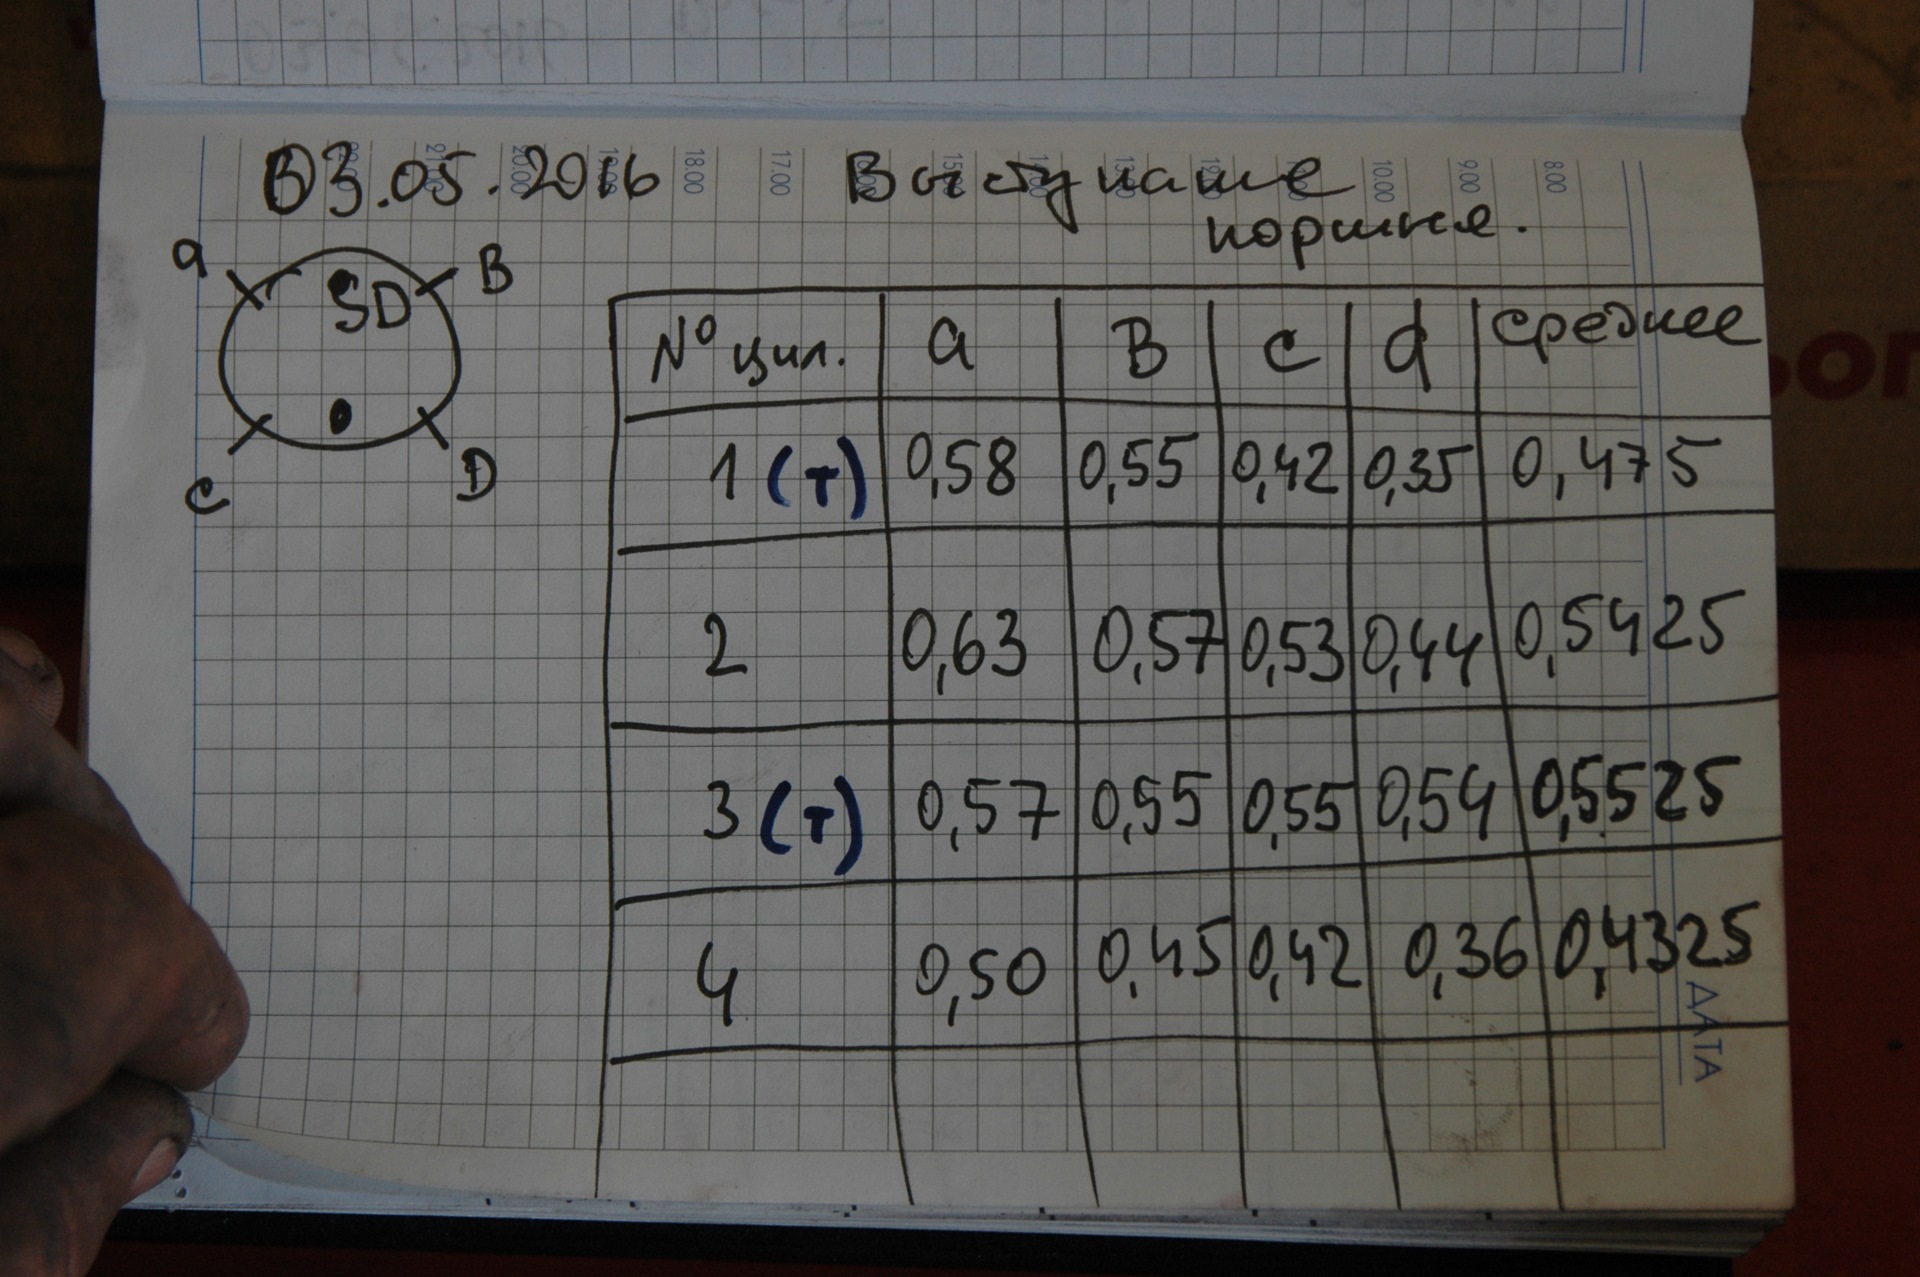 03.05.2016 Выступание
поршня.
a B
SD
C D
№ цил. a B c d среднее
1 (т) 0,58 0,55 0,42 0,35 0,475
2 0,63 0,57 0,53 0,44 0,5425
3 (т) 0,57 0,55 0,55 0,54 0,5525
4 0,50 0,45 0,42 0,36 0,4325
21.00 20.00 18.00 17.00 10.00 9.00 8.00
ДАТА